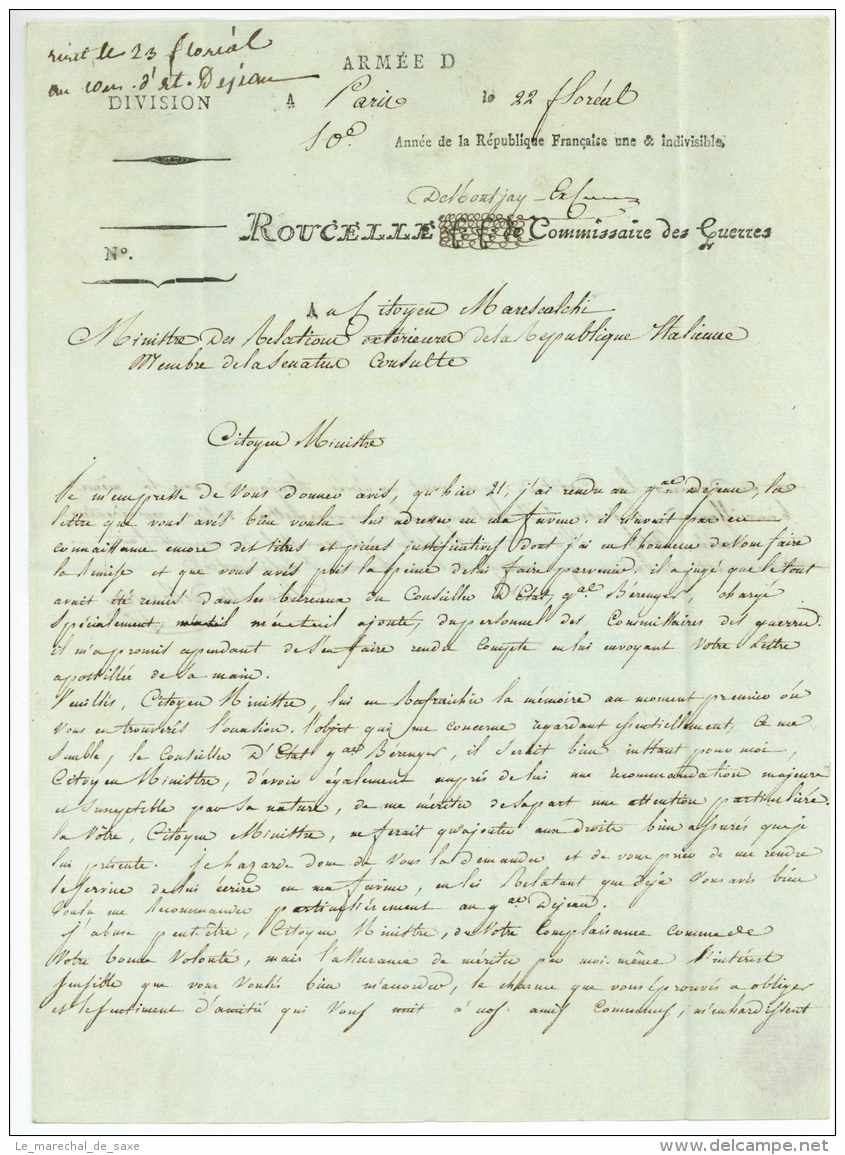 écrit le 23 floréal
au cons. d'Et. Dejean
ARMÉE D
DIVISION A Paris le 22 floréal
10e. Année de la République Française une & indivisible.
DeMontjay - Ex
ROUCELLE f. f. de Commissaire des Guerres
N°.
Au Citoyen Marescalchi
Ministre Des Relations extérieures de la République Italienne
Membre de la Senatus Consulte
Citoyen Ministre
Je m'empresse de Vous donner avis, qu'hier 21, j'ai rendu au gral Dejean, la
lettre que vous avés bien voulu lui adresser en ma faveur. il n'avait pas eu
connaissance encore des titres et pièces justificatives dont j'ai eu l'honneur de Vous faire
la Remise et que vous avés pris la peine de lui faire parvenir. il a jugé que le tout
avait été remis dans les bureaux du Conseiller d'Etat, gal. Bérenger, chargé
Spécialement, m'a-t-il ajouté, du personnel des Commissaires des guerres.
il m'a promis cependant de s'en faire rendre compte en lui envoyant Votre Lettre
apostillée de Sa main.
Veuillés, Citoyen Ministre, lui en Rafraichir la mémoire au moment premier où
Vous en trouverés l'occasion. l'objet qui me concerne regardant essentiellement, Ce me
Semble, le Conseiller D'Etat gal Bérenger, il Serait bien instant pour moi,
Citoyen Ministre, d'avoir également auprès de lui une recommandation majeure
et Susceptible par Sa nature, de me mériter de Sa part une attention particulière.
la Vôtre, Citoyen Ministre, ne ferait qu'ajouter aux droits bien assurés que je
lui présente. je hazarde donc de Vous la demander et de vous prier de me rendre
le Service de lui écrire en ma faveur, en lui Relatant que déjà Vous avés bien
Voulu me Recommander particulièrement au gral Dejean.
J'abuse peut être, Citoyen Ministre, de Votre Complaisance comme de
Votre bonne Volonté, mais l'assurance de mériter par moi-même l'intérêt
sensible que vous Voulés bien m'accorder, le charme que vous éprouvés a obliger
et le sentiment d'amitié qui Vous unit à nos amis communs, m'enhardissent
Le_marechal_de_saxe
www.delcampe.net